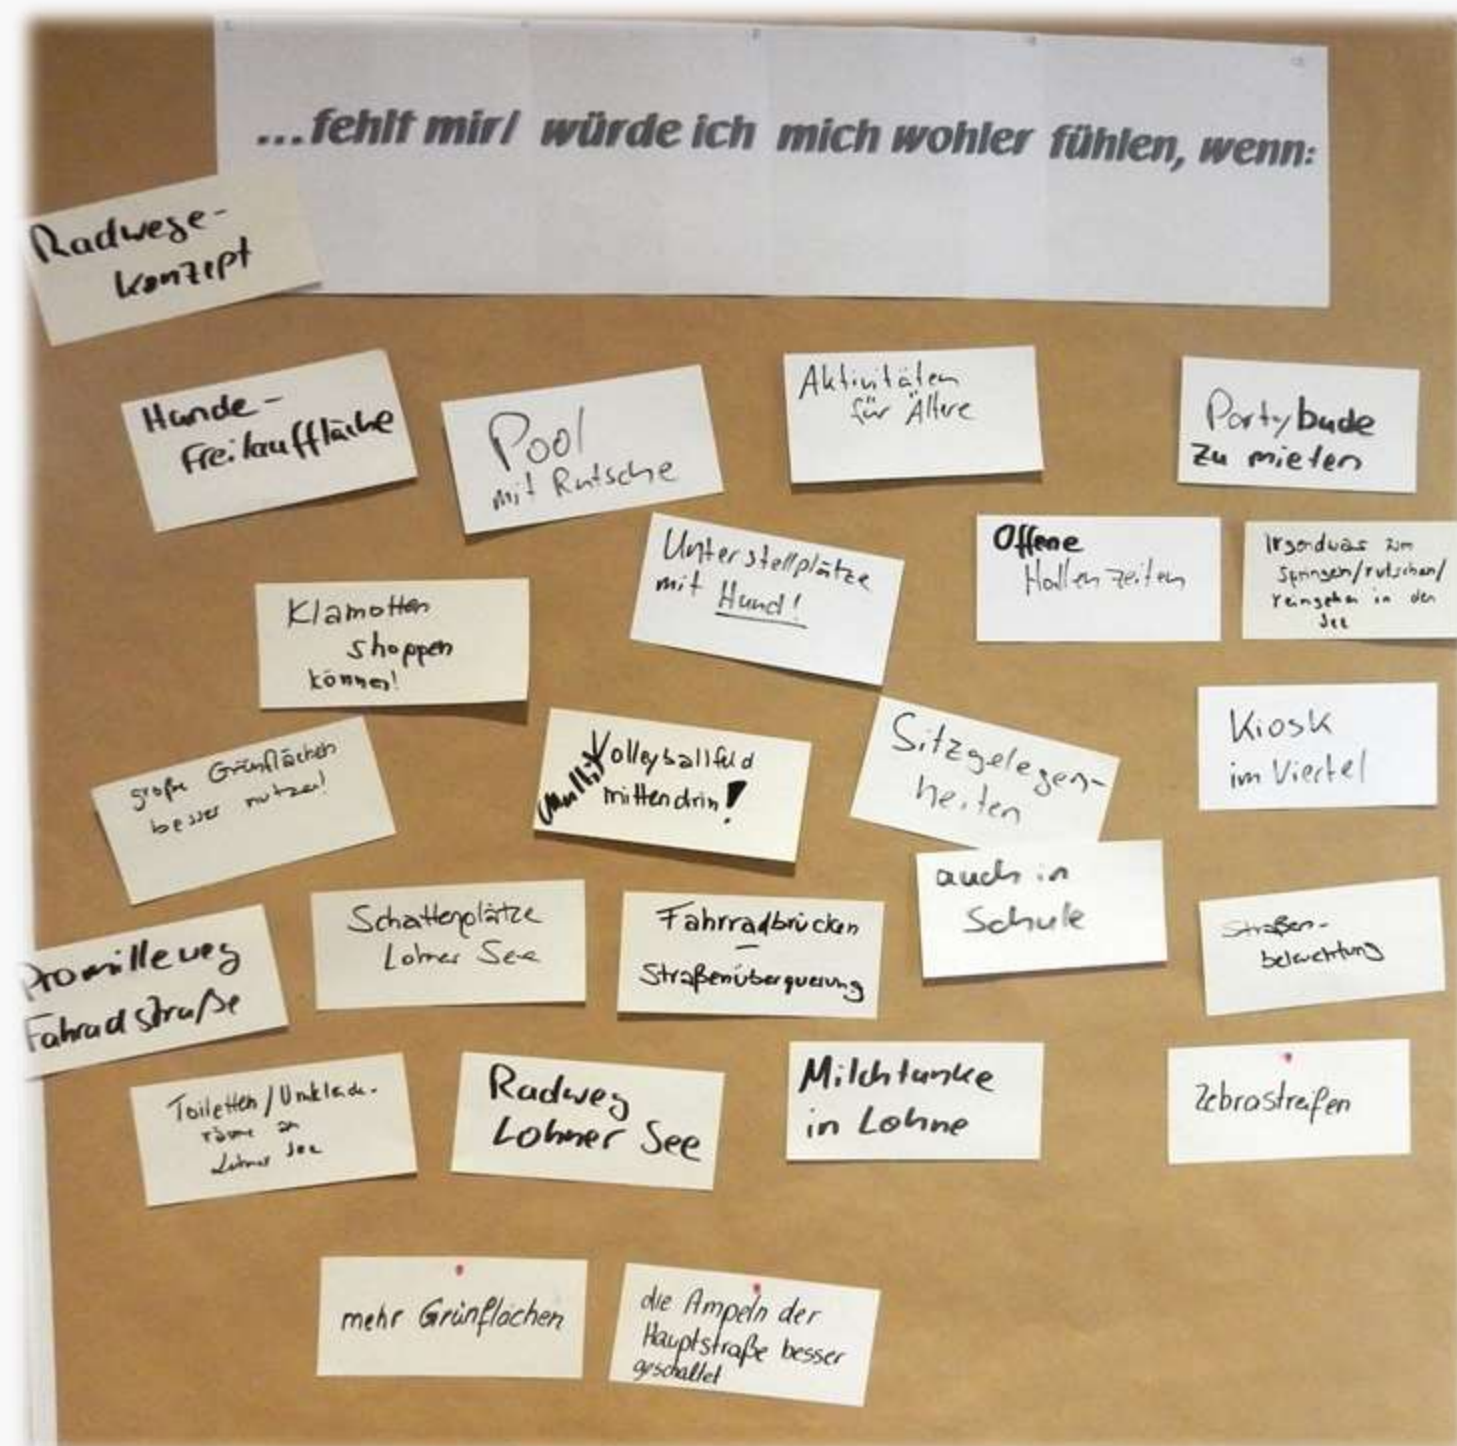 ...fehlt mir/ würde ich mich wohler fühlen, wenn:
Radwege-
konzept
Hunde-
Freilauffläche
Pool
mit Rutsche
Aktivitäten
für Ältere
Partybude
zu mieten
Unterstellplätze
mit Hund!
Offene
Hallenzeiten
Irgendwas zum
Springen/rutschen/
reingehen in den
See
Klamotten
shoppen
können!
große Grünflächen
besser nutzen!
Volleyballfeld
mittendrin!
Sitzgelegen-
heiten
auch in
Schule
Kiosk
im Viertel
Promilleweg
Fahradstraße
Schattenplätze
Lohner See
Fahrradbrücken
–
Straßenüberquerung
Straßen-
beleuchtung
Toiletten/Umkleide-
räume an
Lohner See
Radweg
Lohner See
Milchtanke
in Lohne
Zebrastreifen
mehr Grünflächen
die Ampeln der
Hauptstraße besser
geschaltet